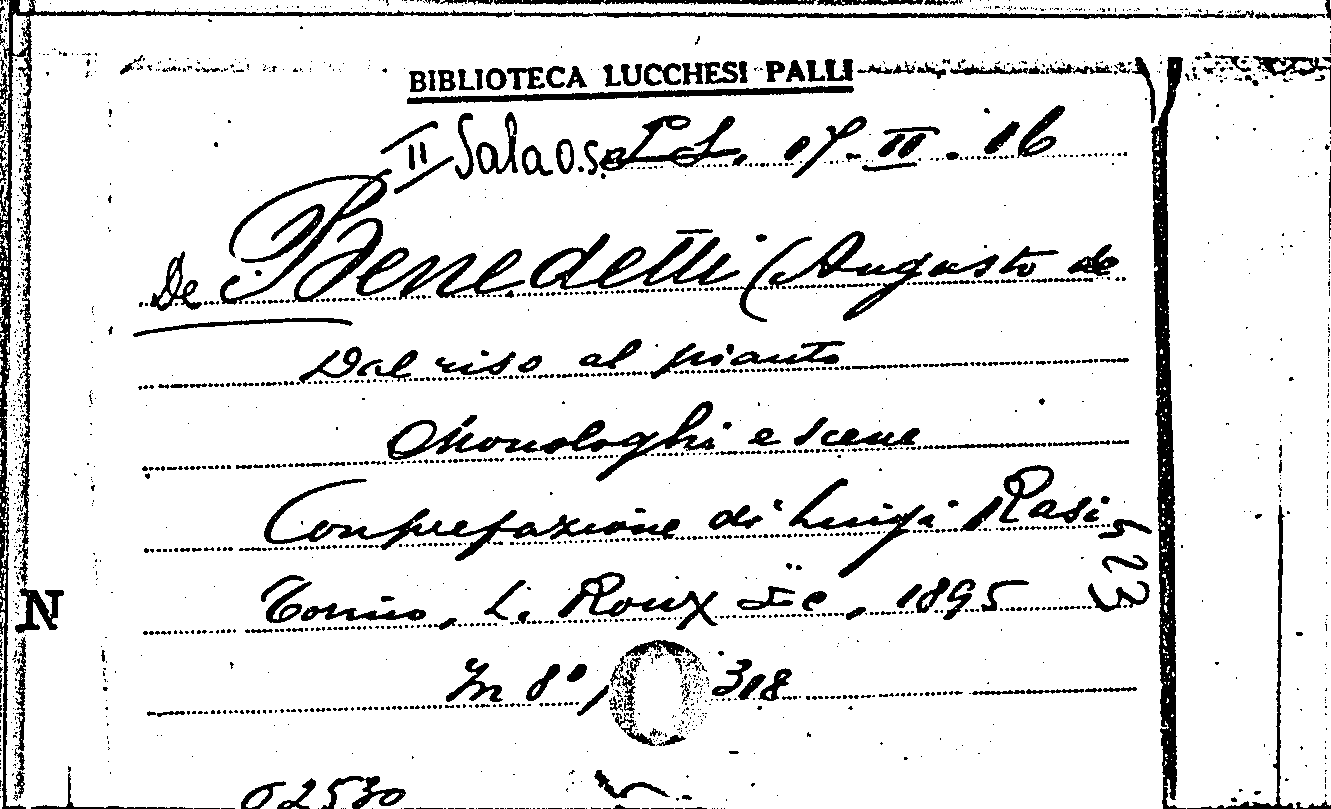 BIBLIOTECA LUCCHESI PALLI
II Sala O.S. 17.II.16
De Benedetti (Augusto de
Dal riso al pianto
Monologhi e scene
Con prefazione di Luigi Rasi
Torino, L. Roux e C, 1895
In 8°, 318
N
02530